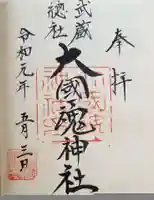 奉拝
武蔵
總社
大國魂神社
令和元年
五月三日